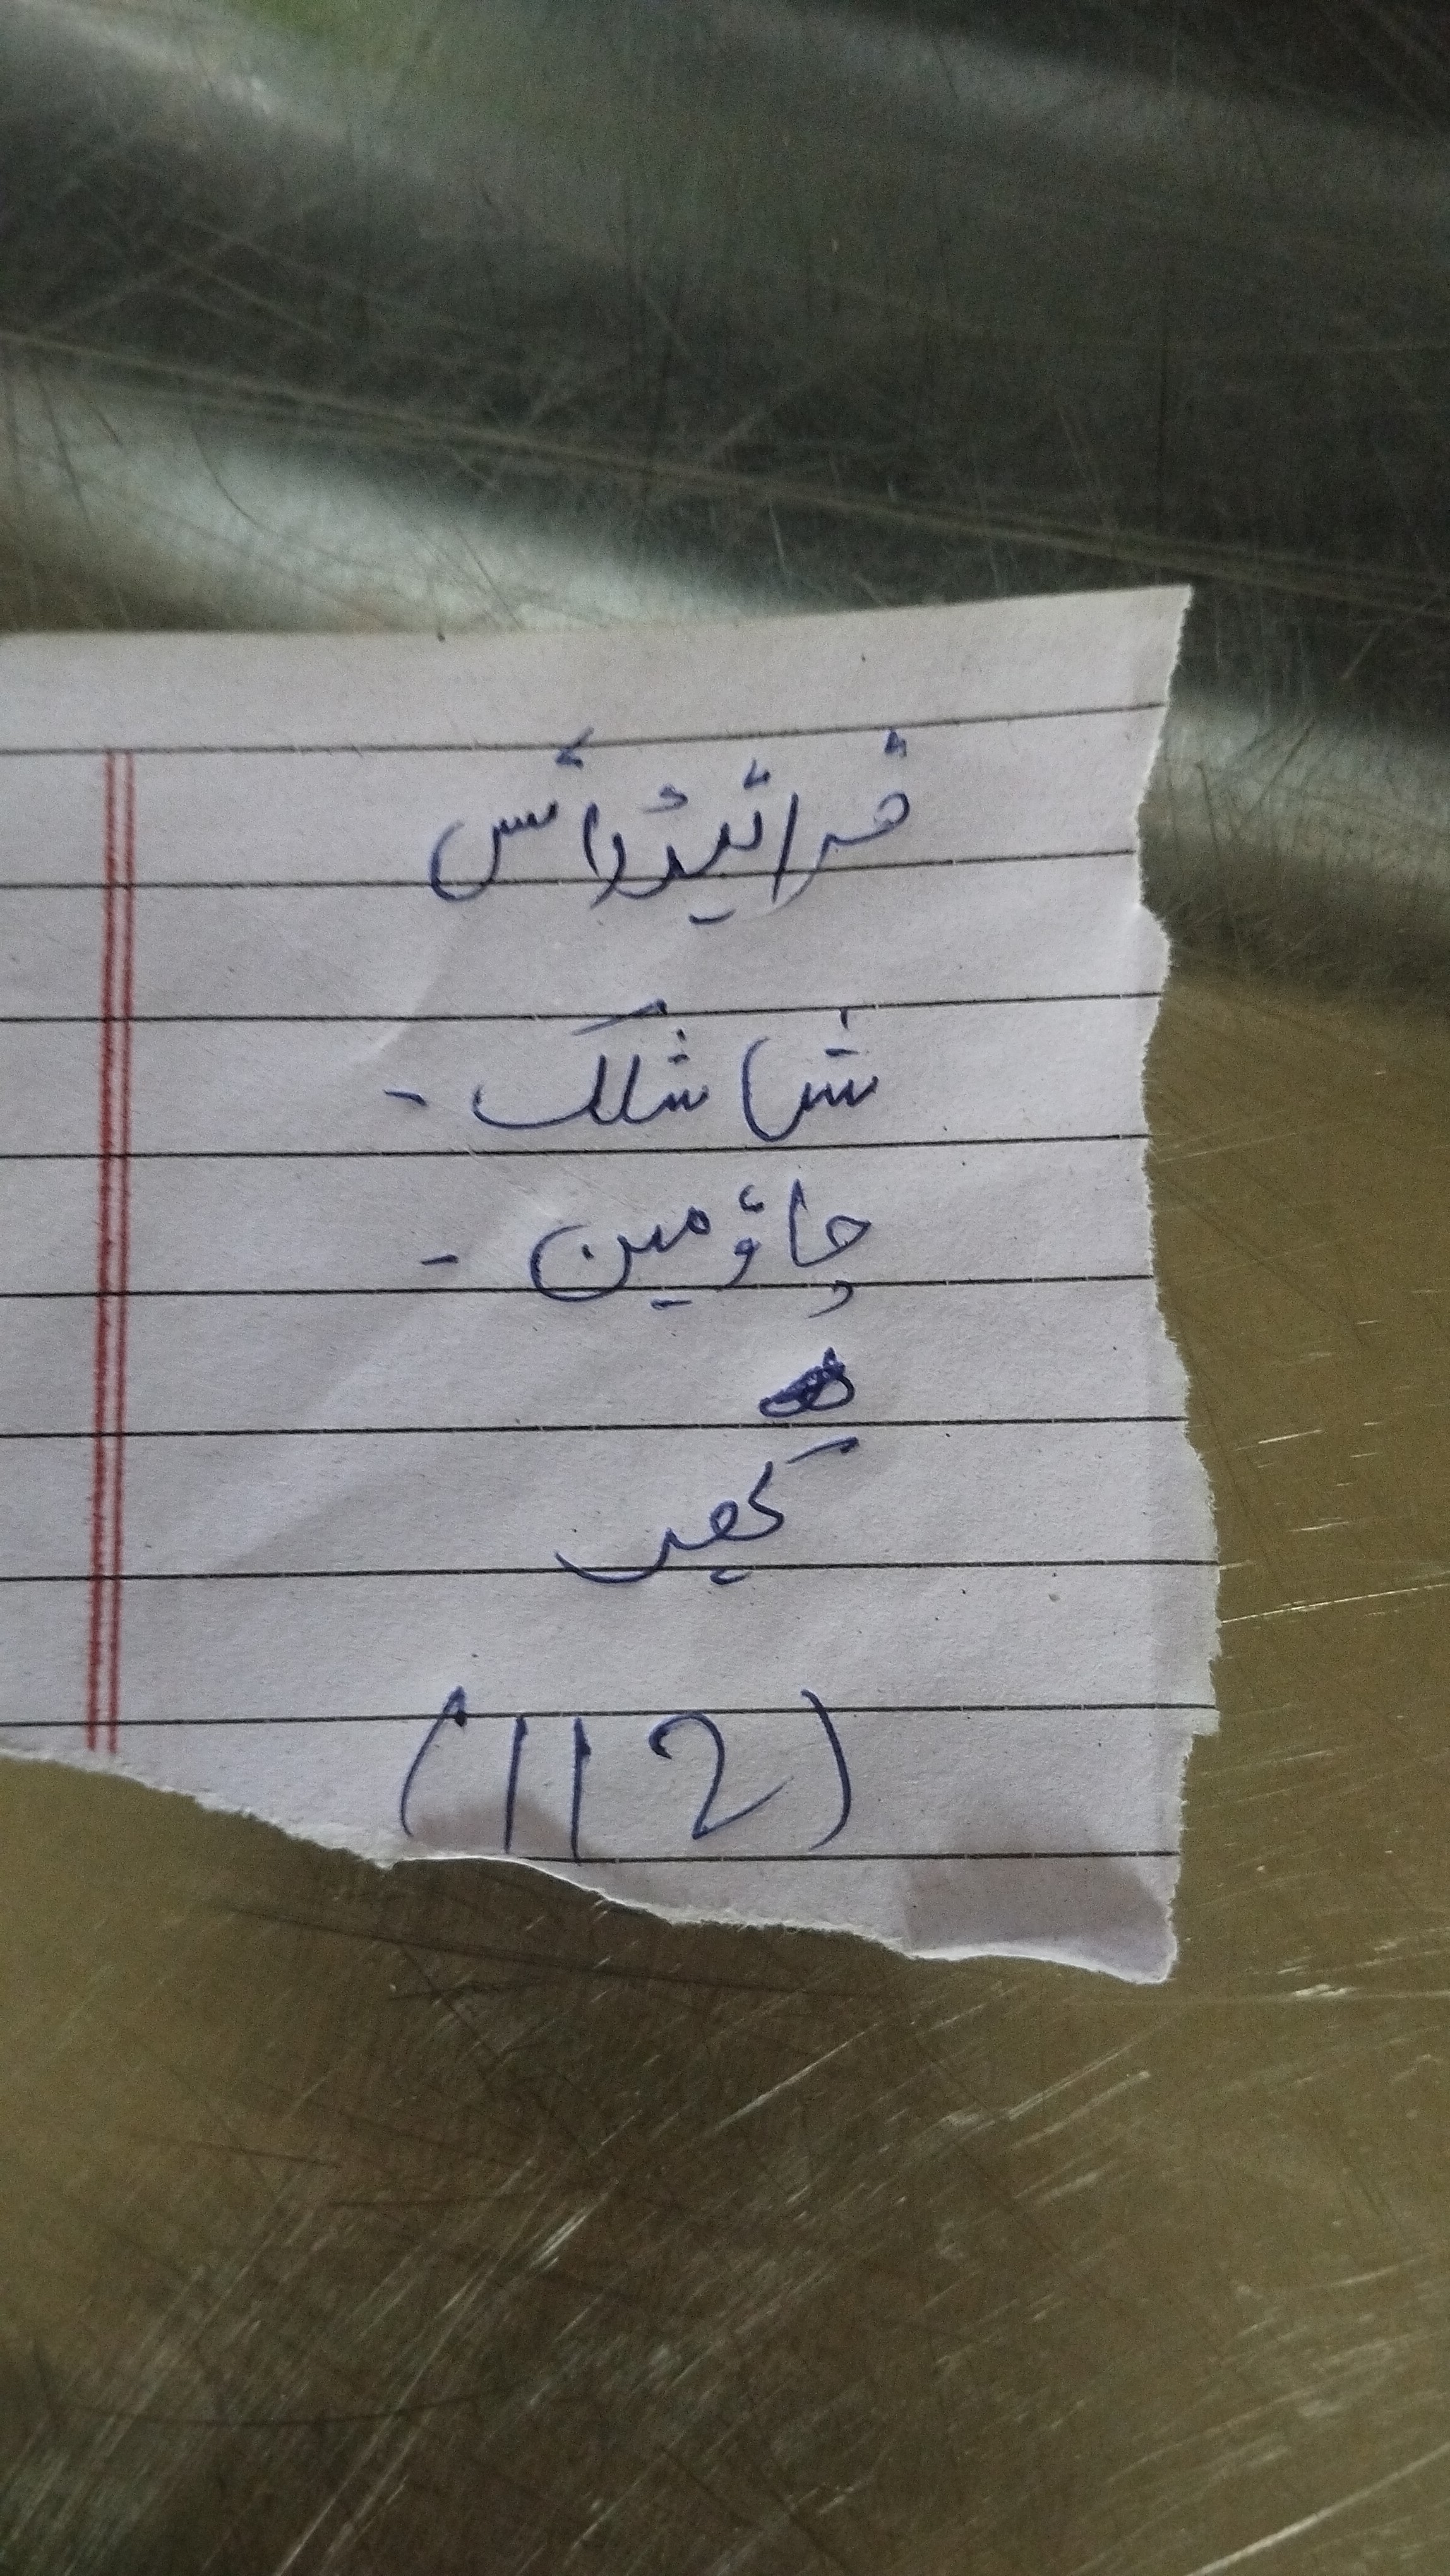 فرائیڈ رائس
شاشلک -
چاؤمین -
کھیر
(112)